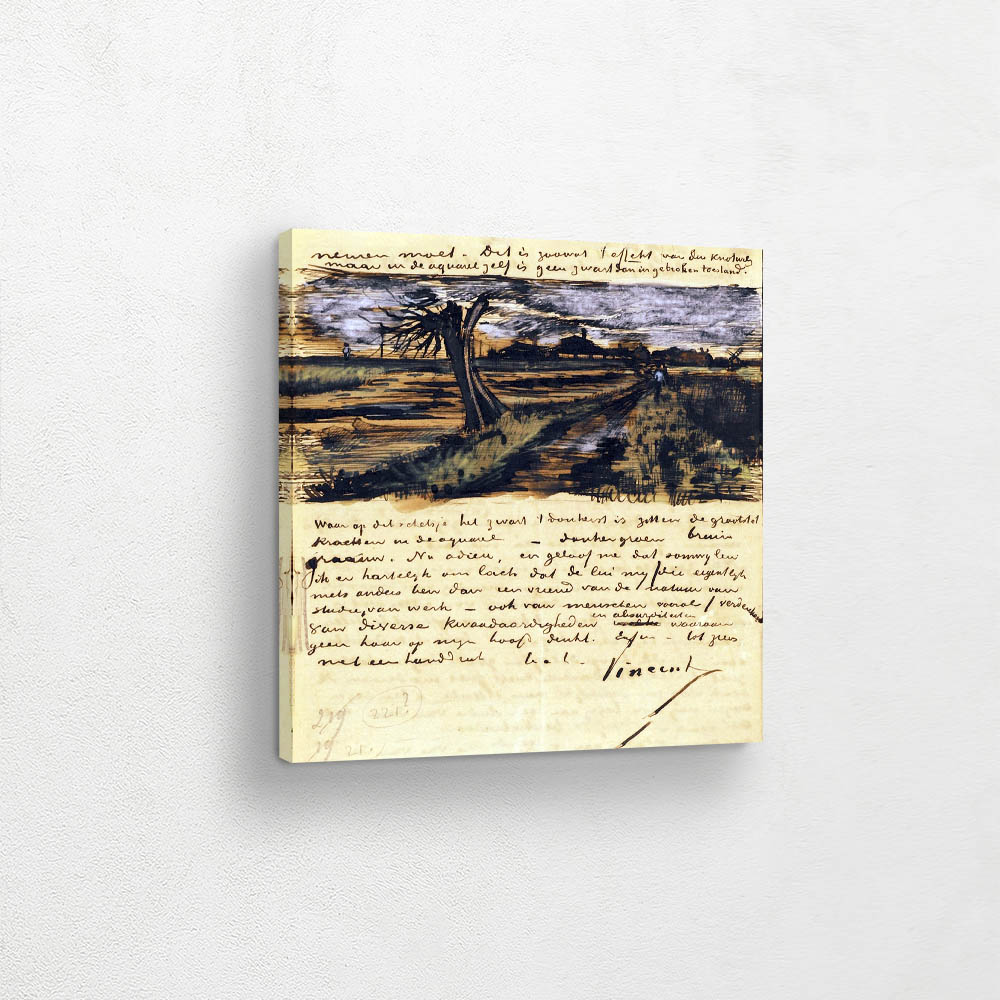 nemen moet. Dit is zoowat 't effekt van den Knotwilg
maar in de aquarel zelf is geen zwart dan in gebroken toestand.
Waar op dit schetsje het zwart 't donkerst is zitten de grootste
krachten in de aquarel – donkergroen bruin
graauw. Nu adieu, en geloof me dat soms
ik er hartelijk om lach dat de lui my / die eigentlyk
niets anders ben dan een vriend van de natuur van
studie, van werk – ook van menschen vooral / verdenken
van diverse kwaadaardigheden en absurditeiten waaraan
geen haar op myn hoofd denkt. Enfin – tot ziens
met een handdruk t. à t.
Vincent